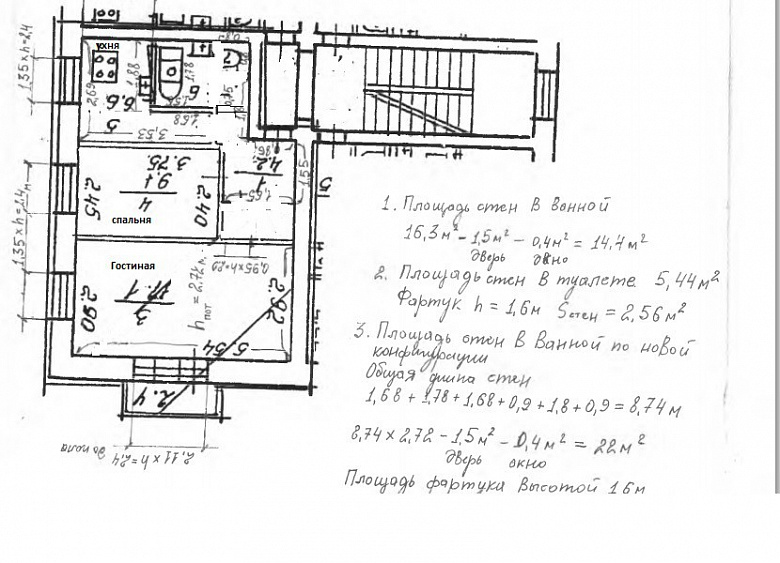 кухня
1,35 x h=2,4
2,69
6.6
5
1,88
1,78
6
1,58
1,68
3,53
0,75
0,86
4.2
1
1,55
1,65
5
3.75
9.1
4
2.45
2.40
спальня
1,35 x h=2,4м
Гостиная
17.1
3
2.90
2.92
5.54
h пот = 2.72 м.
0,95xh=2,0
2.4
2,11 x h=2,4
до пола
1. Площадь стен в ванной
16,3м² - 1,5м² - 0,4м² = 14,4м²
дверь окно
2. Площадь стен в туалете 5,44м²
Фартук h = 1,6м Sстен = 2,56м²
3. Площадь стен в ванной по новой
конфигурации
Общая длина стен
1,68 + 1,78 + 1,68 + 0,9 + 1,8 + 0,9 = 8,74м
8,74 x 2,72 - 1,5м² - 0,4м² = 22м²
дверь окно
Площадь фартука высотой 1.6м